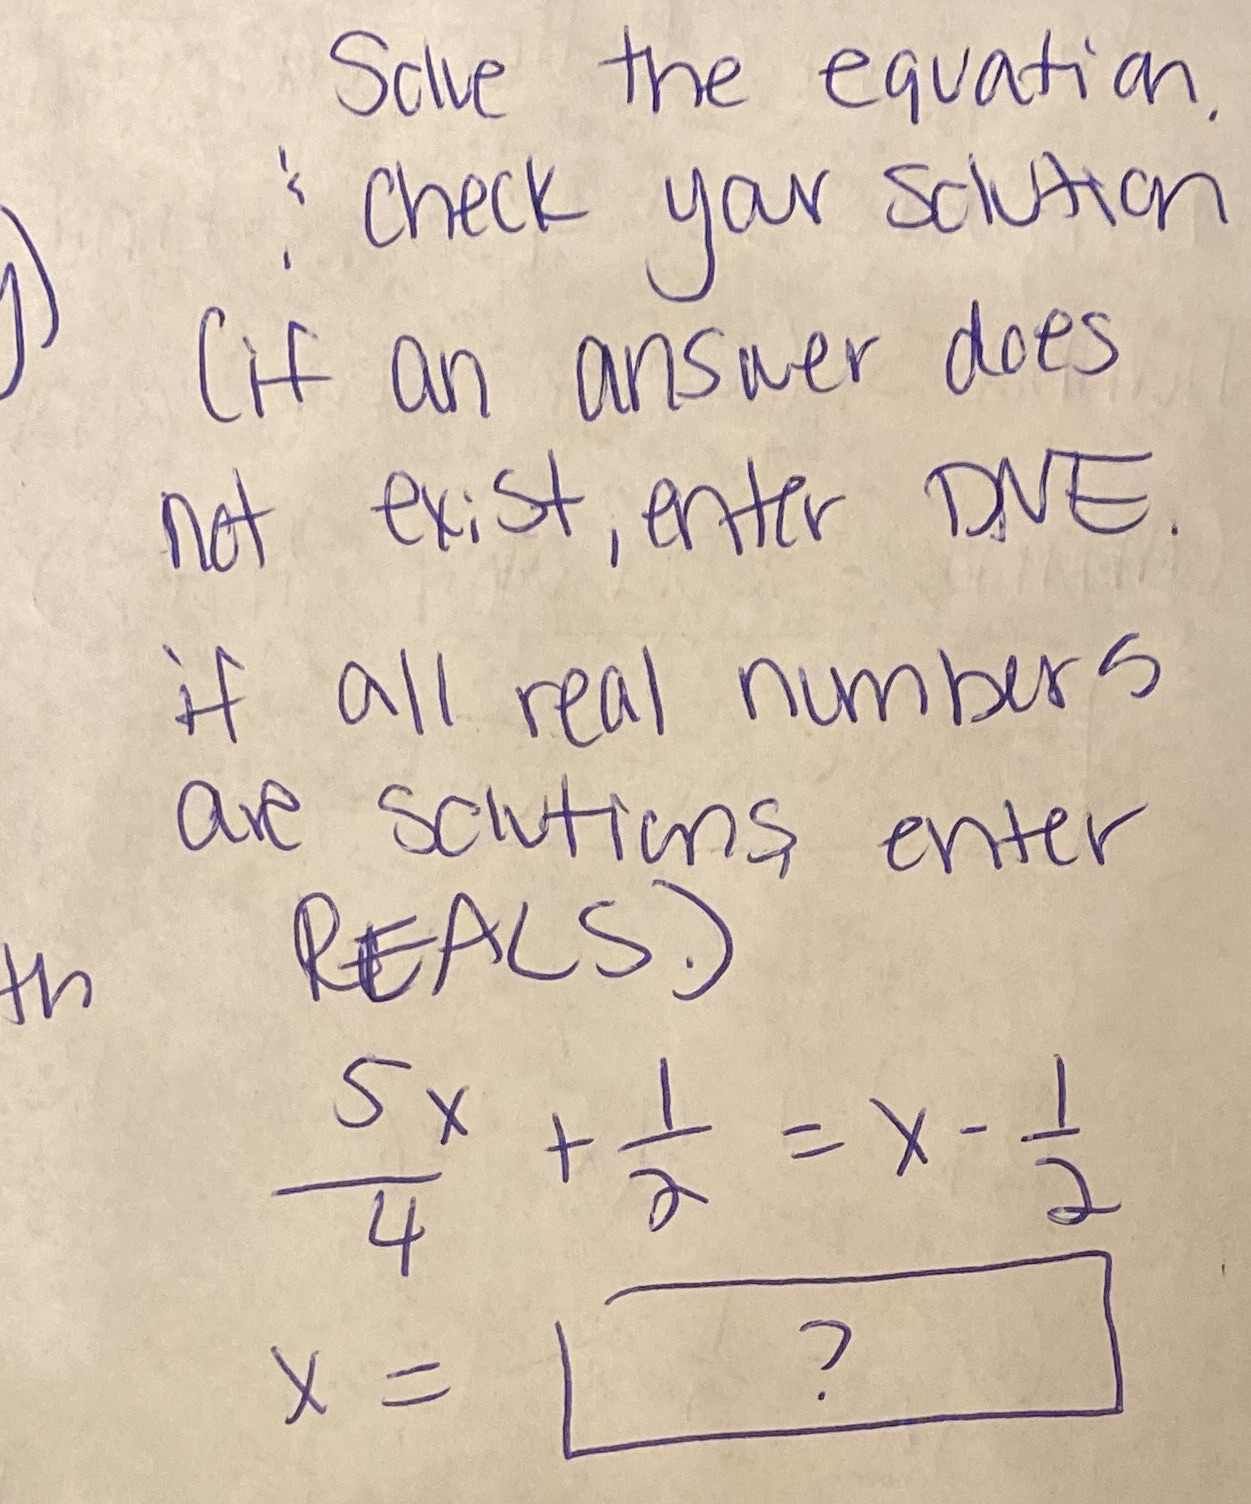 Solve the equation.
& check your solution
y)
(if an answer does
not exist, enter DNE.
if all real numbers
are solutions, enter
REALS.)
th
5x/4 + 1/2 = x - 1/2
x = ?